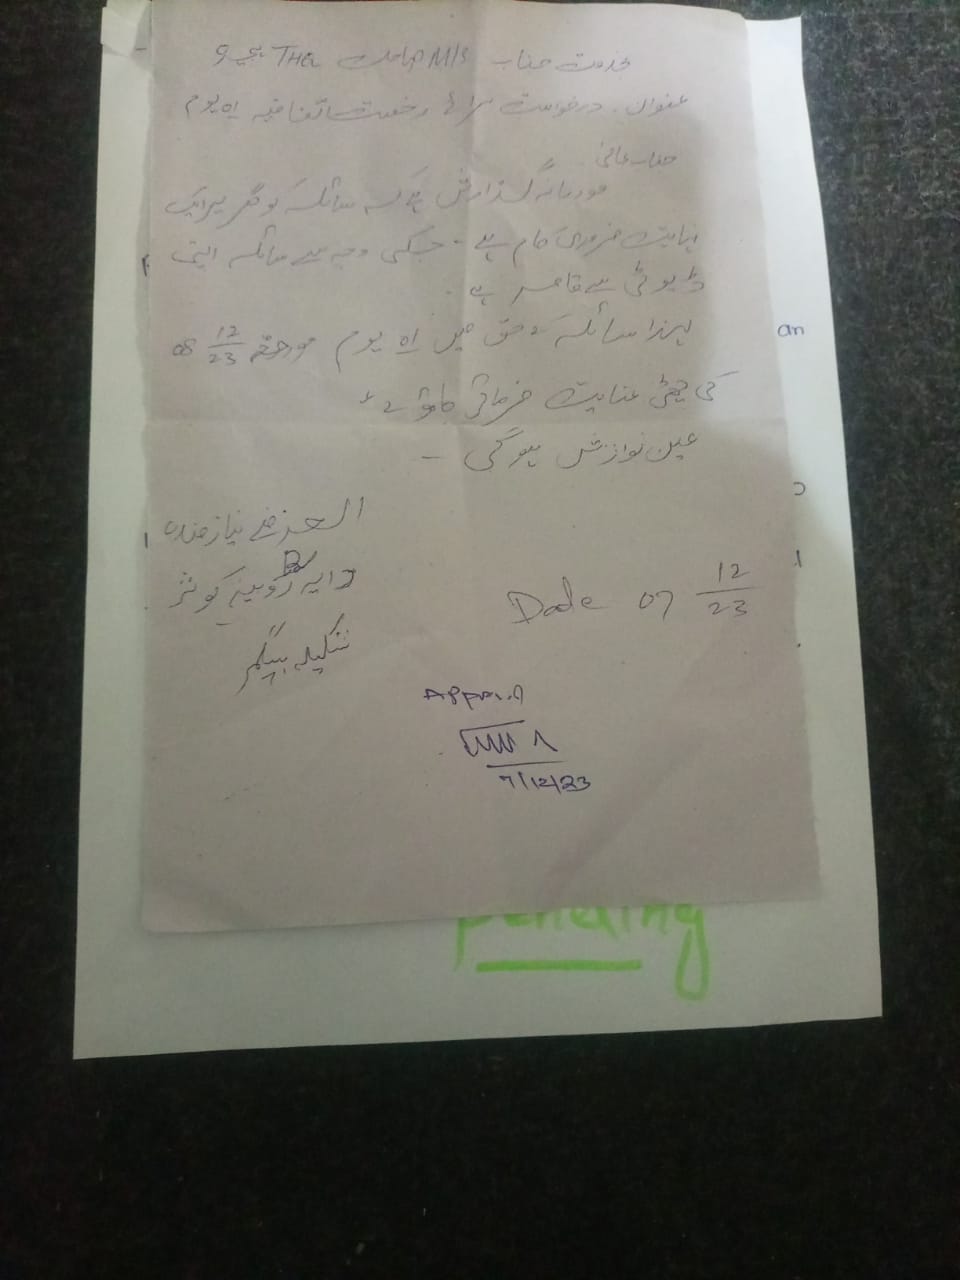 بخدمت جناب M/S صاحب THQ
عنوان۔ درخواست برائے رخصت اتفاقیہ 01 یوم
جناب عالی
مودبانہ گذارش ہے کہ سائلہ کو گھر پر ایک
نہایت ضروری کام ہے۔ جسکی وجہ سے سائلہ اپنی
ڈیوٹی سے قاصر ہے۔
لہذا سائلہ کے حق میں 01 یوم مورخہ 08 12/23
کی چھٹی عنایت فرمائی جاوے
عین نوازش ہوگی۔
العارض نیازمندہ
دایہ روبینہ کوثر
شکیلہ بیگم
Date 07 12/23
7/12/23
pending
an